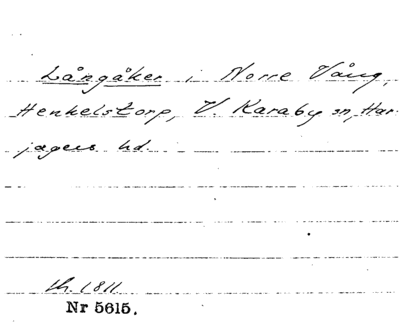 Långåker i Norre Vång,
Henkelstorp, V. Karaby sn, Har-
jagers hd.
th. 1811.
Nr 5615.